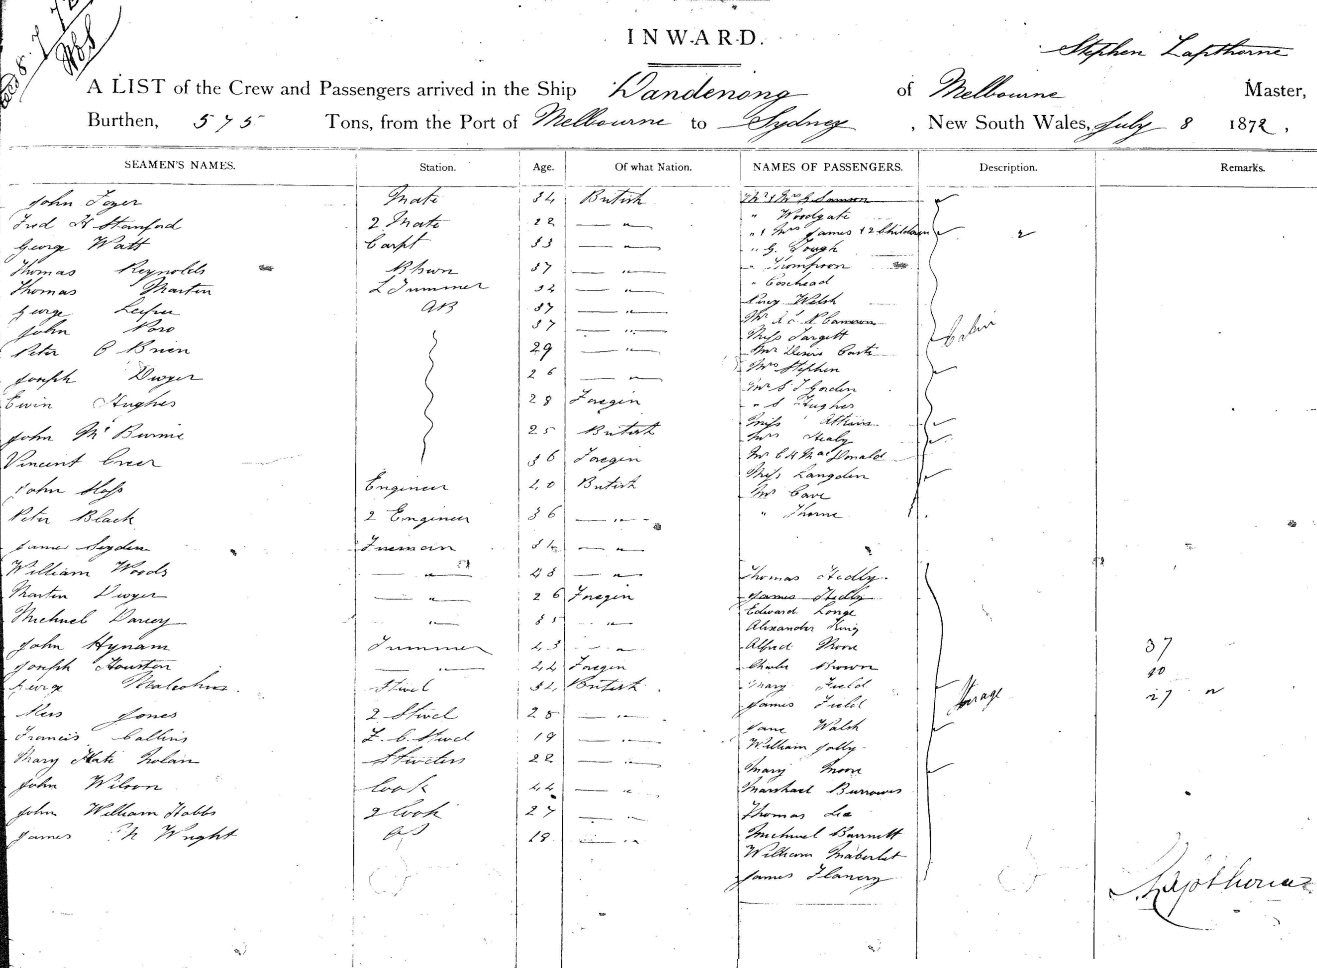 INWARD.
Stephen Lapthorne
A LIST of the Crew and Passengers arrived in the Ship Dandenong of Melbourne Master,
Burthen, 575 Tons, from the Port of Melbourne to Sydney, New South Wales, July 8 1872,
SEAMEN'S NAMES. Station. Age. Of what Nation. NAMES OF PASSENGERS. Description. Remarks.
John Mate 34 British Mr & Mrs G Samson
Fred H Stanford 2 Mate 22 — " — " Woodgate
George Watt Carpt 33 — " — " & Mrs James & 2 Children
" G. Gough
Thomas Reynolds 37 — " — " Thompson
Thomas Martin L Trimmer 32 — " — " Cosehead
George AB 37 — " — Percy Welsh
John 37 — " — Mr
Miss Targett
Peter O Brien 29 — " — Mr
Cabin
Joseph Dwyer 26 — " — Mrs Stephen
Mr S T Gordon
Ewin Hughes 28 Foregin " S Hughes
Miss Atkins
John Mc Burnie 25 British Mrs Healy
Vincent Greer 36 Foregin Mr C H Mac Donald
Miss Langden
John Engineer 40 British Mr Cave
Peter Black 2 Engineer 36 — " — " Thorne
James Fireman 34 — " —
William Woods — " — 43 — " — Thomas Hedly
Martin Dwyer — " — 26 Foregin James Hedly
Edward Longe
Michael Darcey — " — 35 — " — Alexander King
John Hynam Trimmer 43 — " — Alfred Moore 37
Joseph Houston — " — 44 Foregin Charles Brown 10
George Malcolm Stwd 34 British Mary Field 27
James Field
Steerage
Jones 2 Stwd 25 — " — Jane Walsh
Francis Collins F. C. Stwd 19 — " — William Jolly
Mary Kate Nolan 22 — " — Mary Moore
John Wilson Cook 44 — " — Marshall Burrowes
John William Hobbs 2 Cook 27 — " — Thomas Lee
James Wright 18 — " — Michael Barnett
William
James Flanery
S. Lapthorne